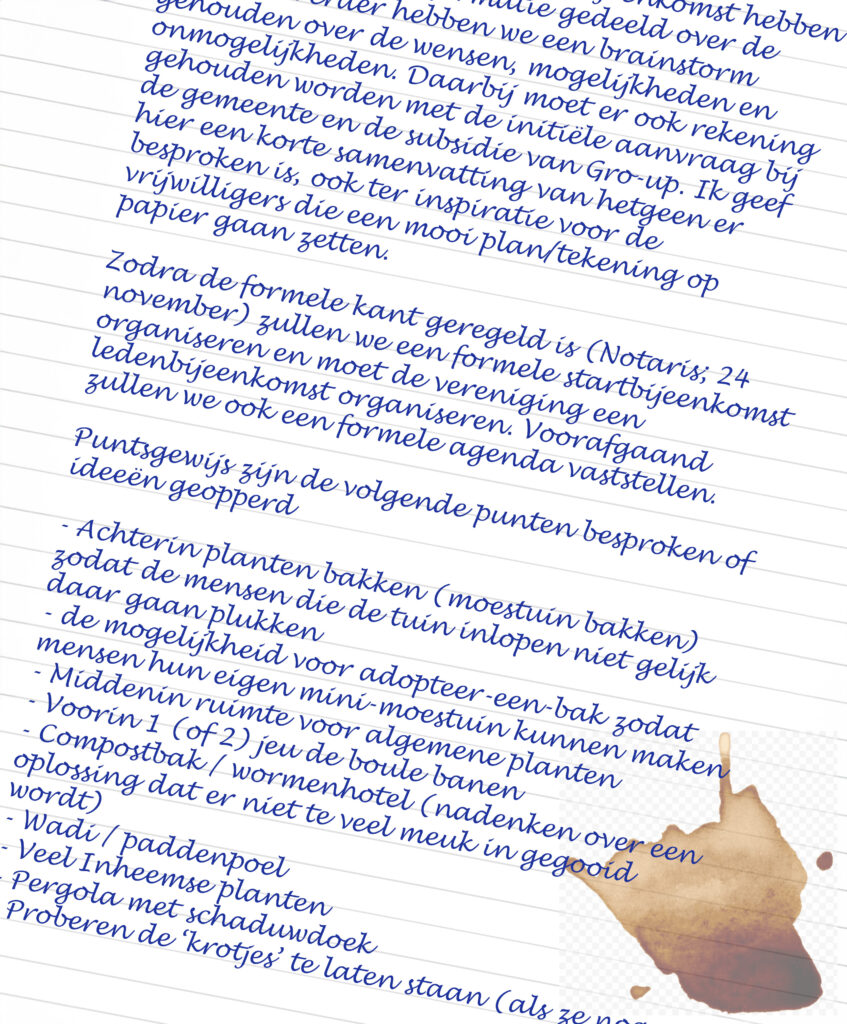 enkomst hebben
matie gedeeld over de
erder hebben we een brainstorm
gehouden over de wensen, mogelijkheden en
onmogelijkheden. Daarbij moet er ook rekening
gehouden worden met de initiële aanvraag bij
de gemeente en de subsidie van Gro-up. Ik geef
hier een korte samenvatting van hetgeen er
besproken is, ook ter inspiratie voor de
vrijwilligers die een mooi plan/tekening op
papier gaan zetten.
Zodra de formele kant geregeld is (Notaris; 24
november) zullen we een formele startbijeenkomst
organiseren en moet de vereniging een
ledenbijeenkomst organiseren. Voorafgaand
zullen we ook een formele agenda vaststellen.
Puntsgewijs zijn de volgende punten besproken of
ideeën geopperd
- Achterin planten bakken (moestuin bakken)
zodat de mensen die de tuin inlopen niet gelijk
daar gaan plukken
- de mogelijkheid voor adopteer-een-bak zodat
mensen hun eigen mini-moestuin kunnen maken
- Middenin ruimte voor algemene planten
- Voorin 1 (of 2) jeu de boule banen
- Compostbak / wormenhotel (nadenken over een
oplossing dat er niet te veel meuk in gegooid
wordt)
- Wadi / paddenpoel
- Veel Inheemse planten
- Pergola met schaduwdoek
Proberen de ‘krotjes’ te laten staan (als ze nog